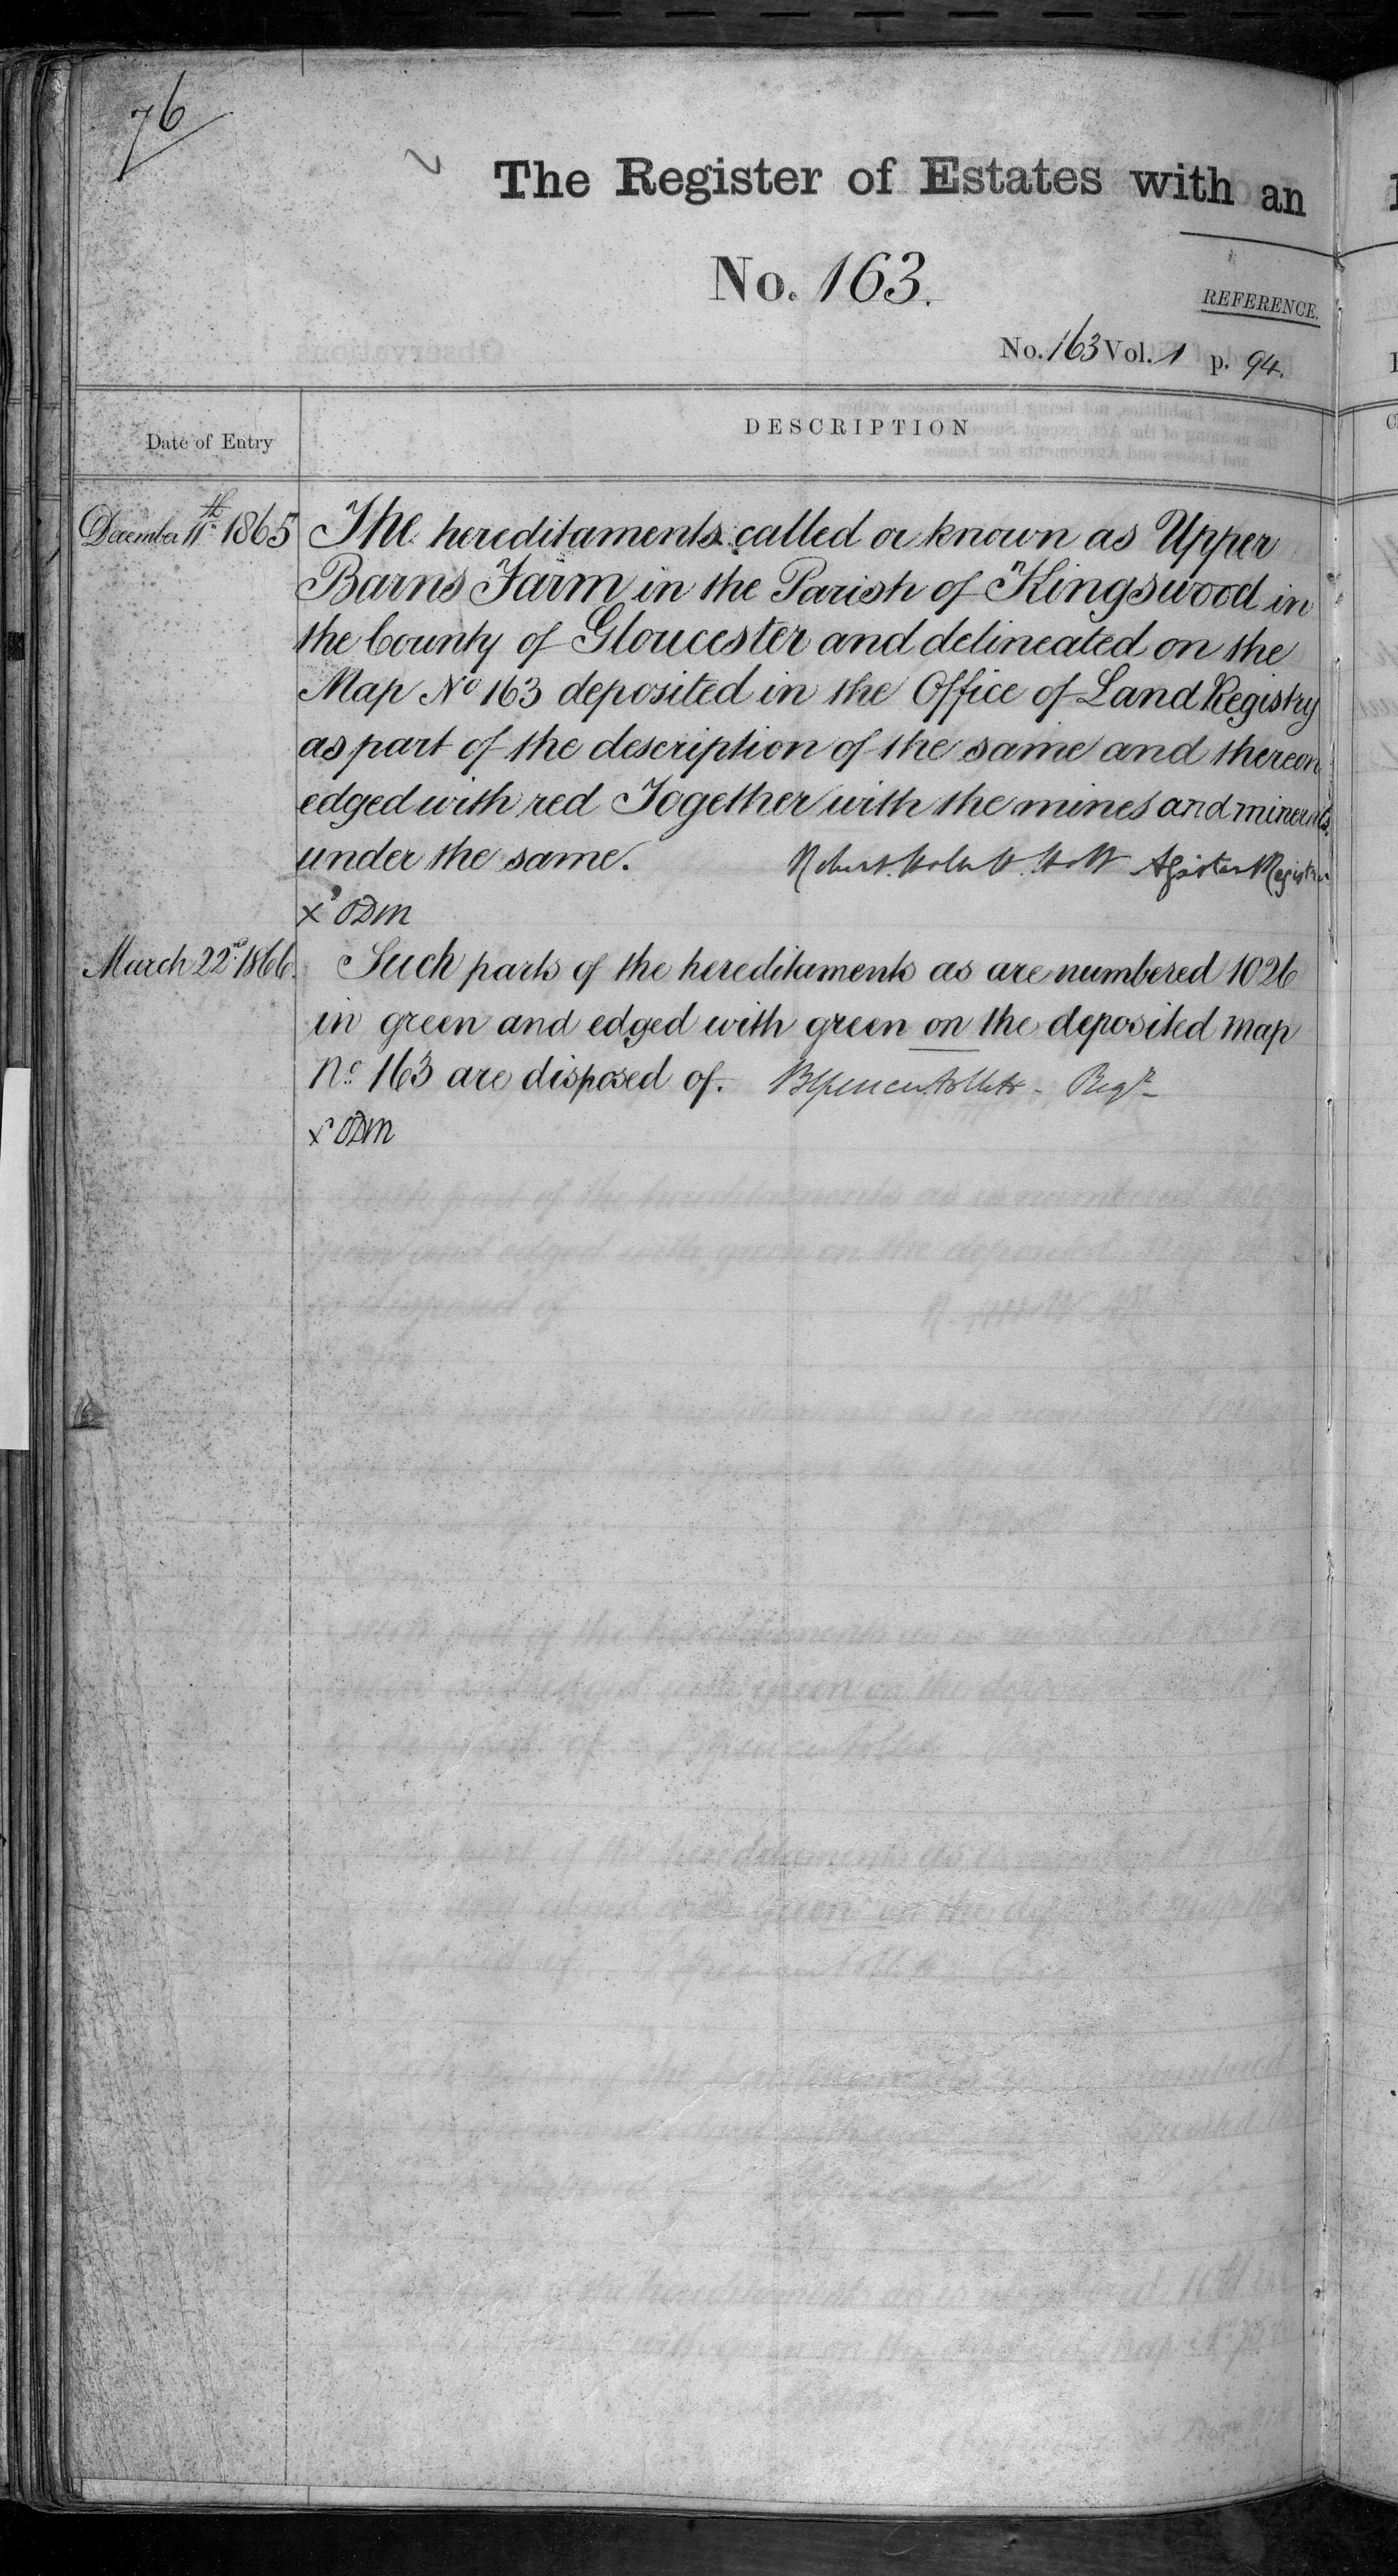 76
The Register of Estates with an
No. 163.
REFERENCE.
No. 163 Vol. 1 p. 94.
Date of Entry
DESCRIPTION
December 11th 1865 The hereditaments called or known as Upper
Barns Farm in the Parish of Kingswood in
the County of Gloucester and delineated on the
Map No 163 deposited in the Office of Land Registry
as part of the description of the same and thereon
edged with red Together with the mines and minerals
under the same. Robert Assistant Registrar
x ODM
March 22nd 1866. Such parts of the hereditaments as are numbered 1026
in green and edged with green on the deposited map
No. 163 are disposed of. Regr
x ODM